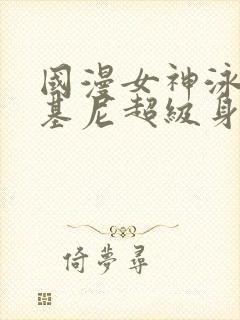 國漫女神泳
基尼超級身
倚夢尋